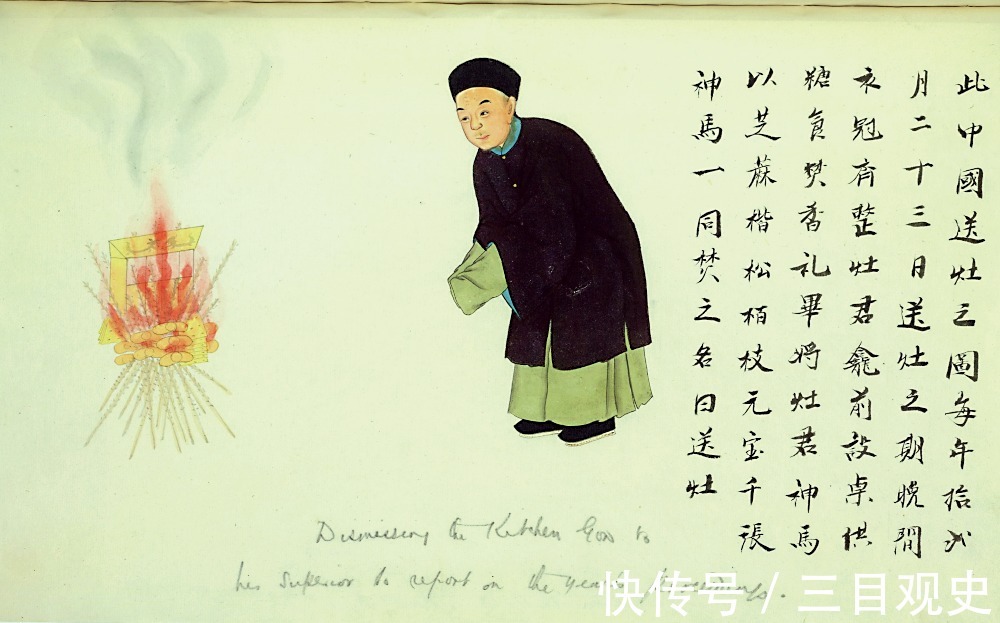 此中國送灶之圖每年拾弍
月二十三日送灶之期晚間
衣冠齊整灶君龕前設桌供
糖食焚香礼畢将灶君神馬
以芝蔴楷松栢枝元宝千張
神馬一同焚之名曰送灶
Dismissing the Kitchen God to
his superior to report on the year's
快传号 / 三目观史